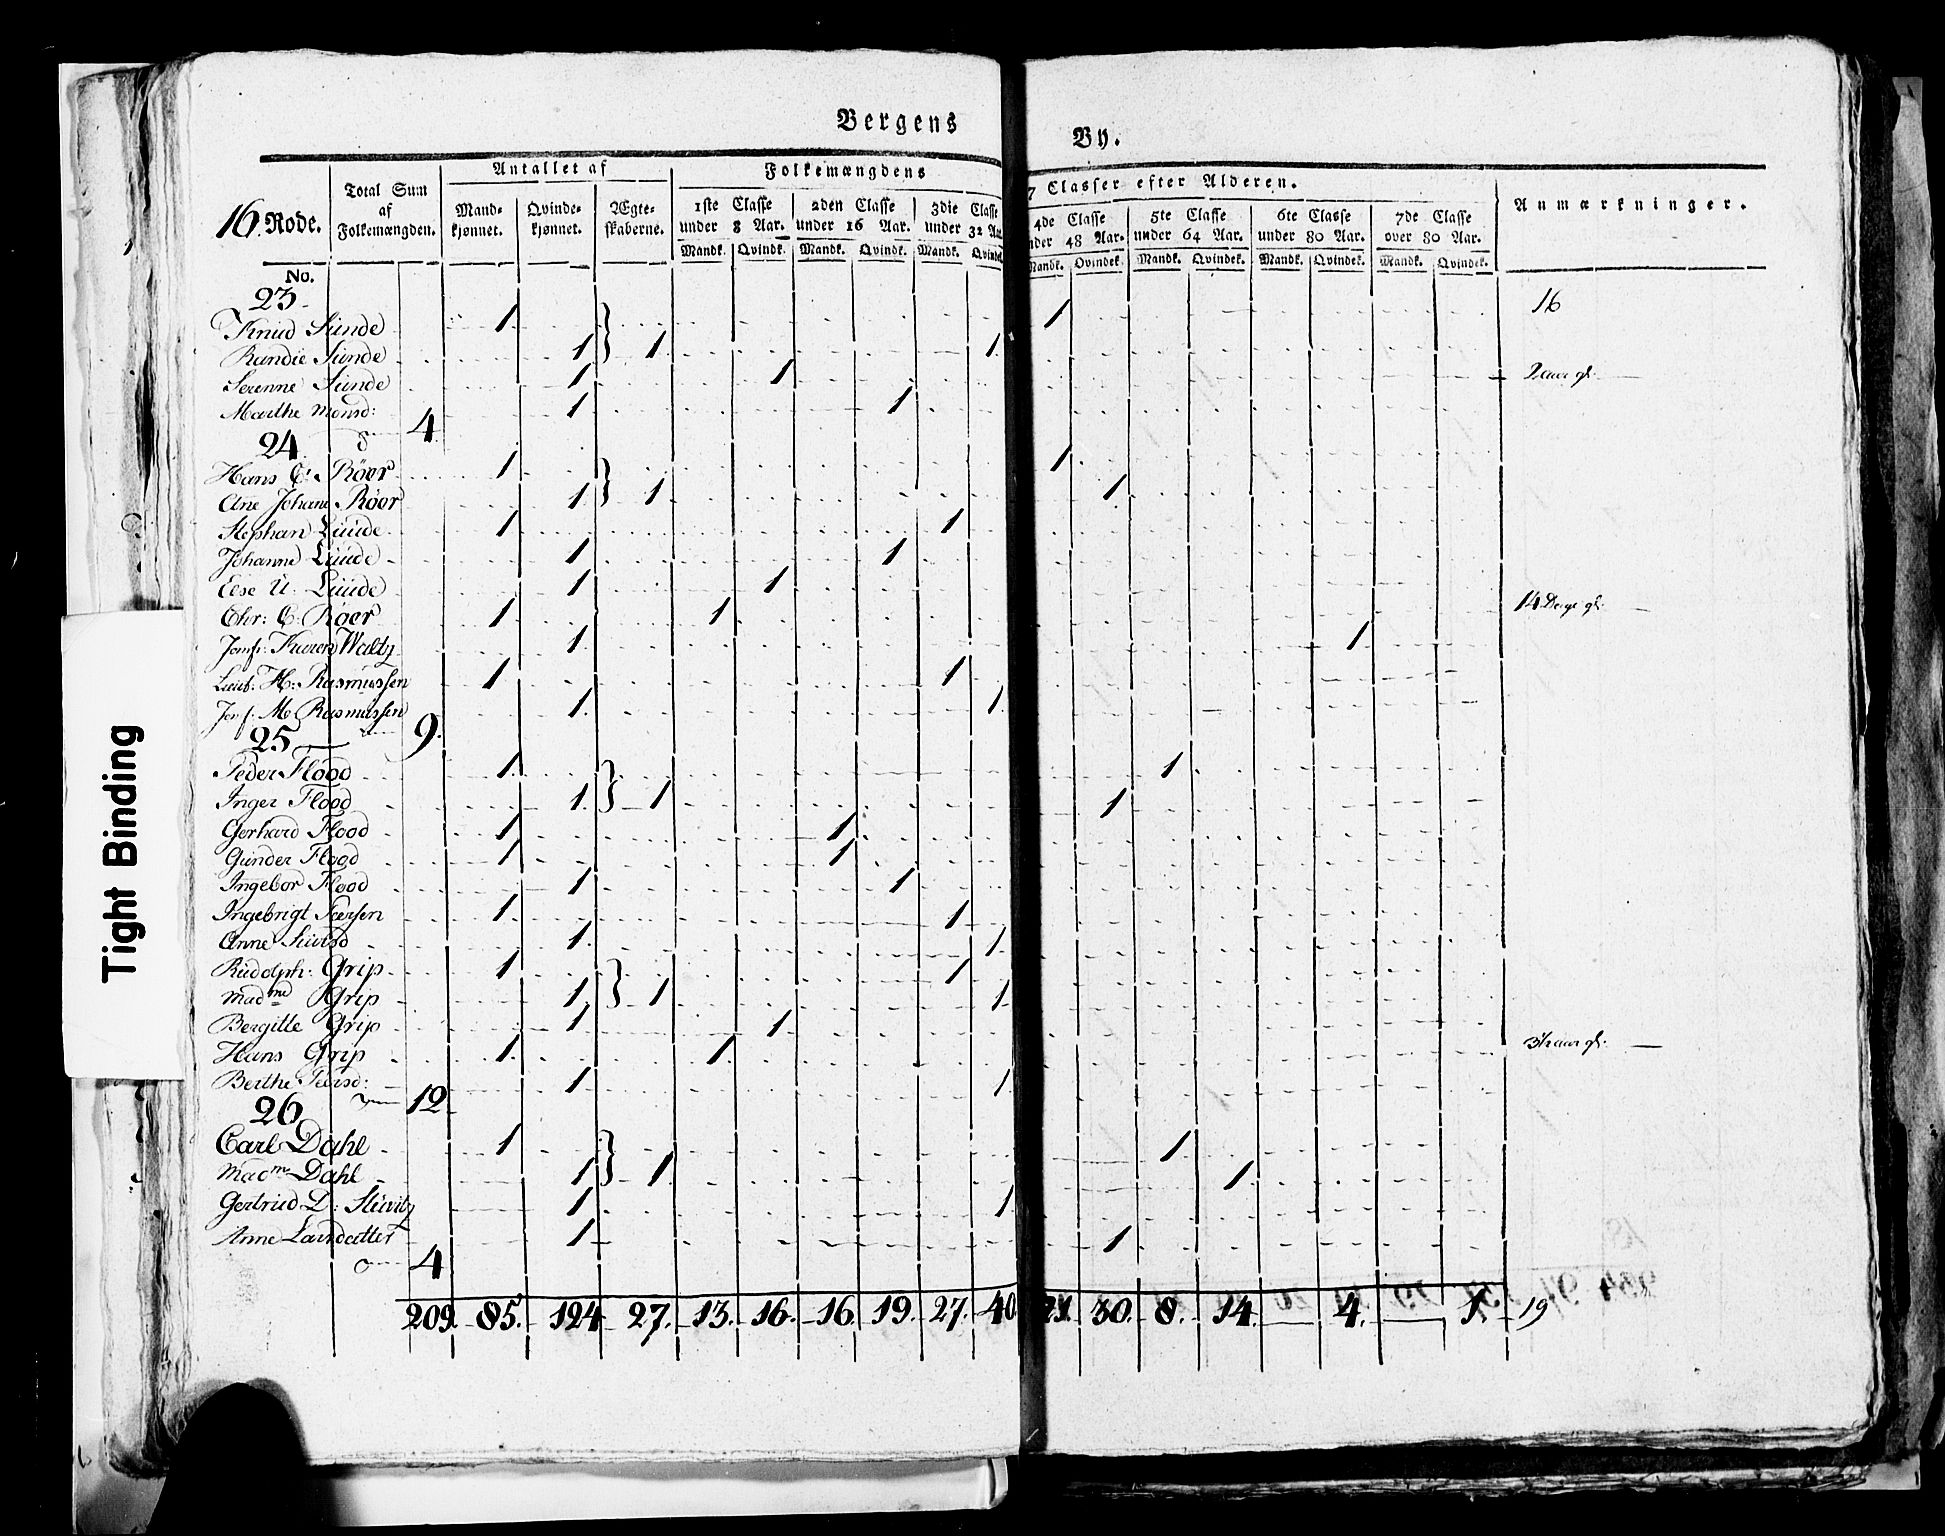 Bergens By.
16. Rode.
Total Sum af Folkemængden.
Antallet af
Mandkjønnet. Qvindekjønnet. Ægteskaberne.
Folkemængdens 7 Classer efter Alderen.
1ste Classe under 8 Aar. 2den Classe under 16 Aar. 3die Classe under 32 Aar. 4de Classe under 48 Aar. 5te Classe under 64 Aar. 6te Classe under 80 Aar. 7de Classe over 80 Aar.
Mandk. Qvindk. Mandk. Qvindk. Mandk. Qvindek. Mandk. Qvindek. Mandk. Qvindek. Mandk. Qvindek. Mandk. Qvindek.
Anmærkninger.
No.
23
Knud Sunde 1 1 16
Randie Sunde 1 1 1
Serenne Sunde 1 1 2 aar gl:
Marthe Monsd: 4 1 1
24
Hans C: Röer 1 1
Ane Johane Röer 1 1 1
Stephan Lüüde 1 1
Johanne Lüüde 1 1
Else U. Lüüde 1 1
Chr: C: Röer 1 1 14 Dage gl:
Jomfr. Karen Waltz 1 1
Lieut: H: Rasmussen 1 1
Jmf. M. Rasmussen 9. 1 1
25
Peder Flood 1 1
Inger Flood 1 1 1
Gerhard Flood 1 1
Gunder Flood 1 1
Ingebor Flood 1 1
Ingebrigt Iversen 1 1
Anne 1 1
Rudolph: Grip 1 1
Madme Grip 1 1 1
Bergitte Grip 1 1
Hans Grip 1 1 3½ aar gl:
Berthe 12 1 1
26
Carl Dahl 1 1
Madm Dahl 1 1 1
Gertrud D: 1 1
Anne 1 1
4
209. 85. 124 27. 13. 16. 16 19. 27. 40 21. 30. 8. 14. 4. 1. 19
Tight Binding